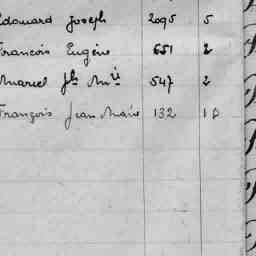 Edouard Joseph 2095 5
Francois Eugène 651 2
Marcel Jh Mie 547 2
François Jean Marie 132 10